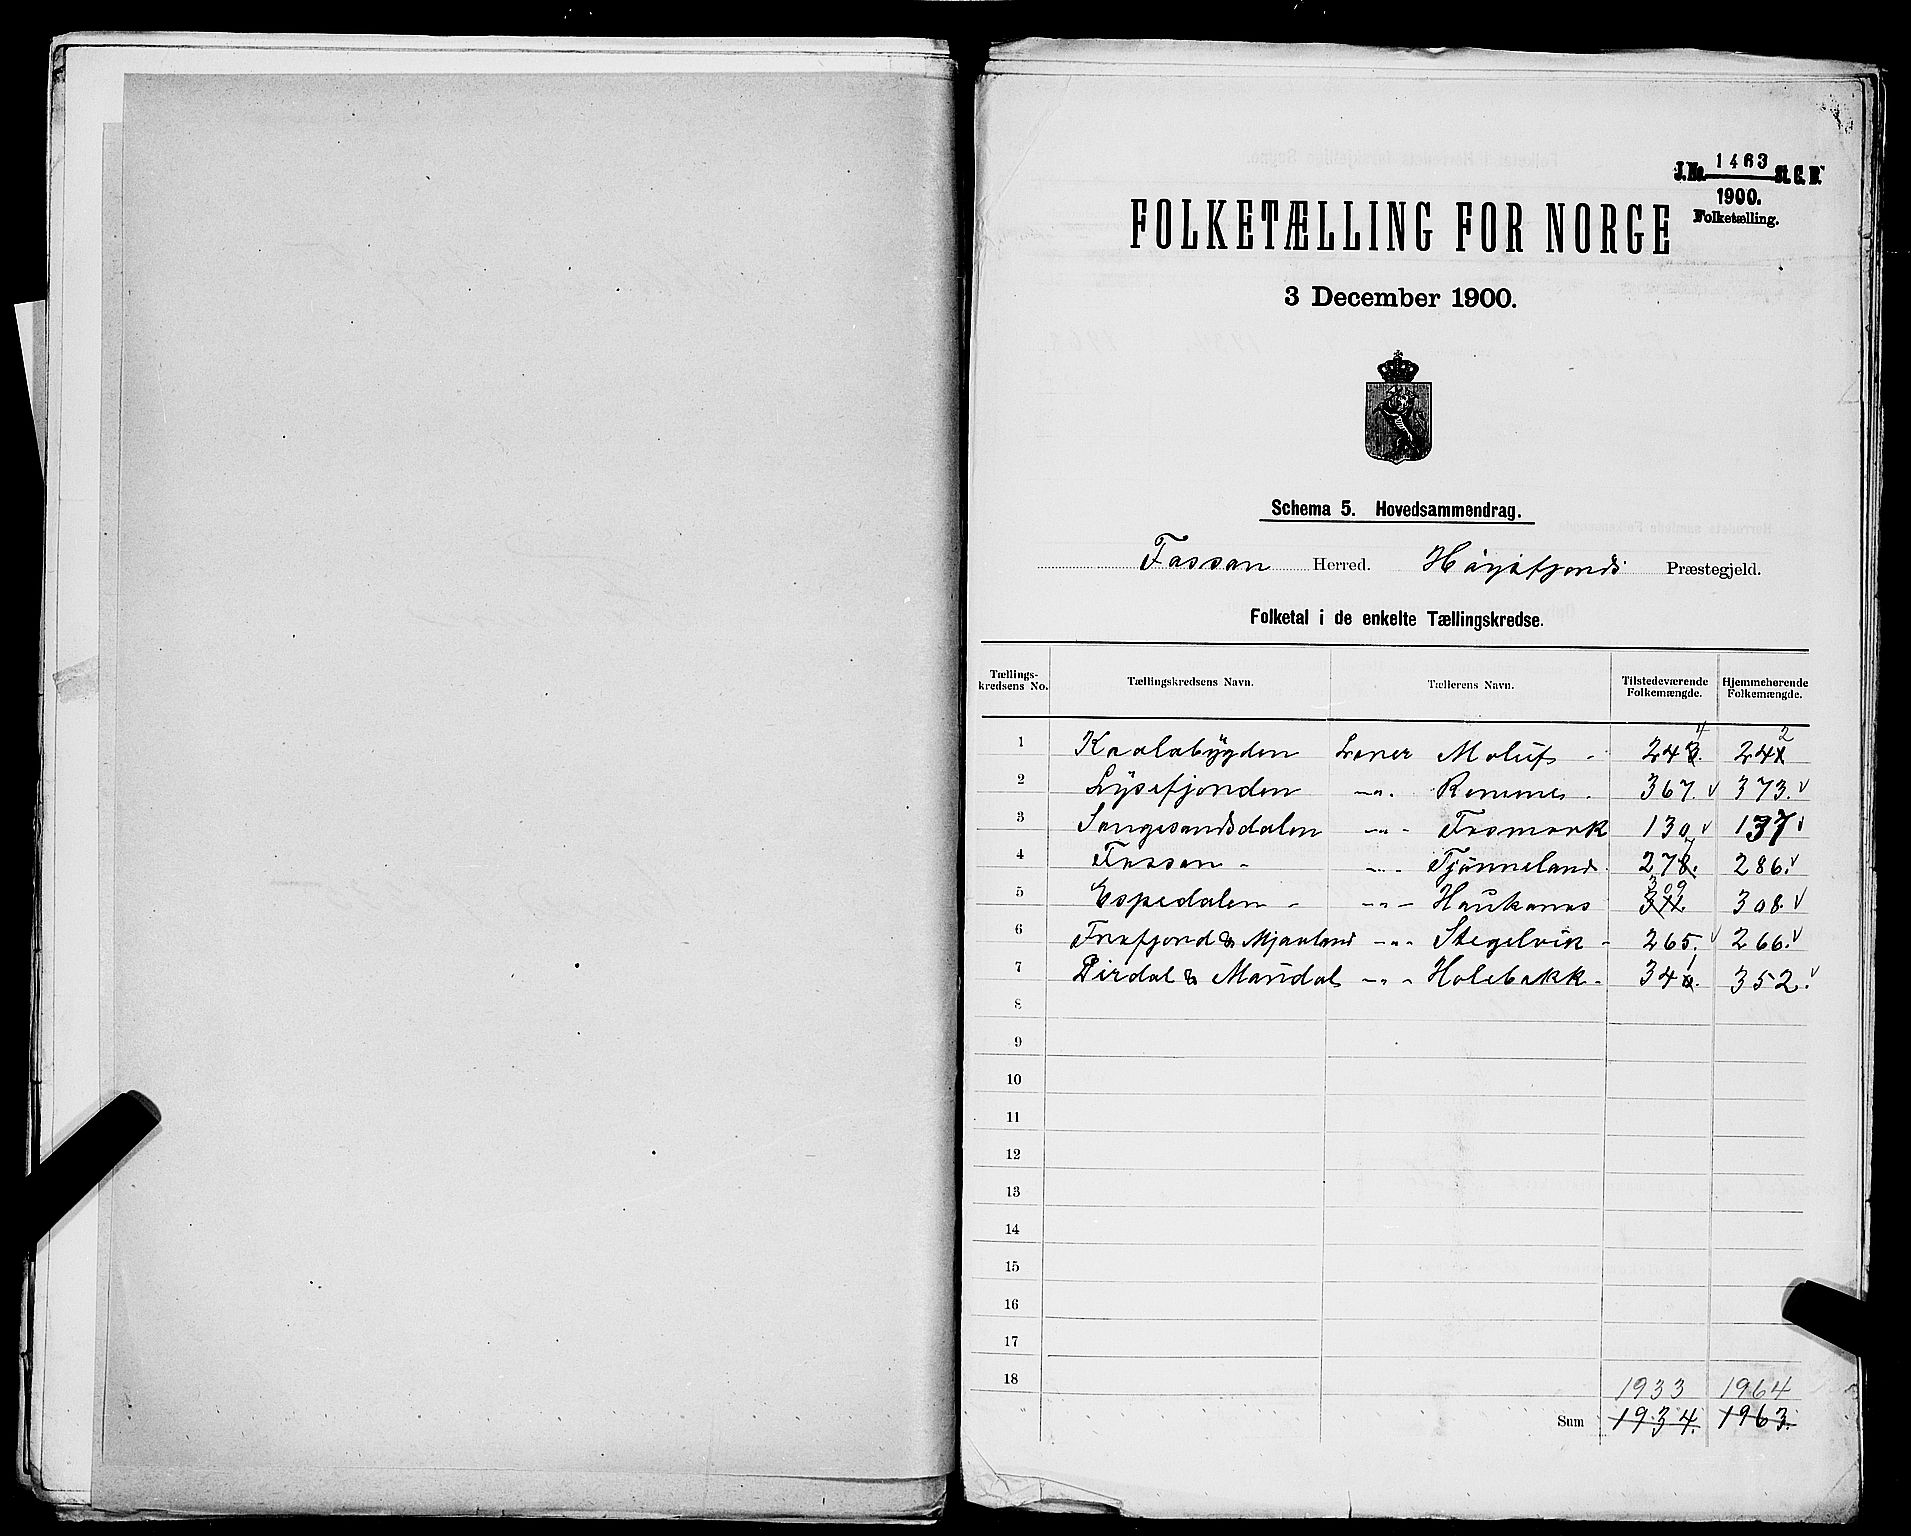 J.No. 1463 St. C. B.
1900.
Folketælling.
FOLKETÆLLING FOR NORGE
3 December 1900.
Schema 5. Hovedsammendrag.
Fossan Herred. Høgsfjords Præstegjeld.
Folketal i de enkelte Tællingskredse.
Tællings-kredsens No. Tællingskredsens Navn. Tællerens Navn. Tilstedeværende Folkemængde. Hjemmehørende Folkemængde.
1 Lærer 244 242
2 Lysefjorden -"- 367. 373.
3 Songesandsdalen -"- Fosmark 130 137
4 Fossan - -"- Tjønneland 277 286.
5 Espedalen - -"- Haukanes 309 308.
6 Frafjord & Mjaaland -"- Stegelvik - 265. 266.
7 Dirdal & Maudal -"- Holebakk - 341 352.
8
9
10
11
12
13
14
15
16
17
18
1933 1964
Sum 1934. 1963.